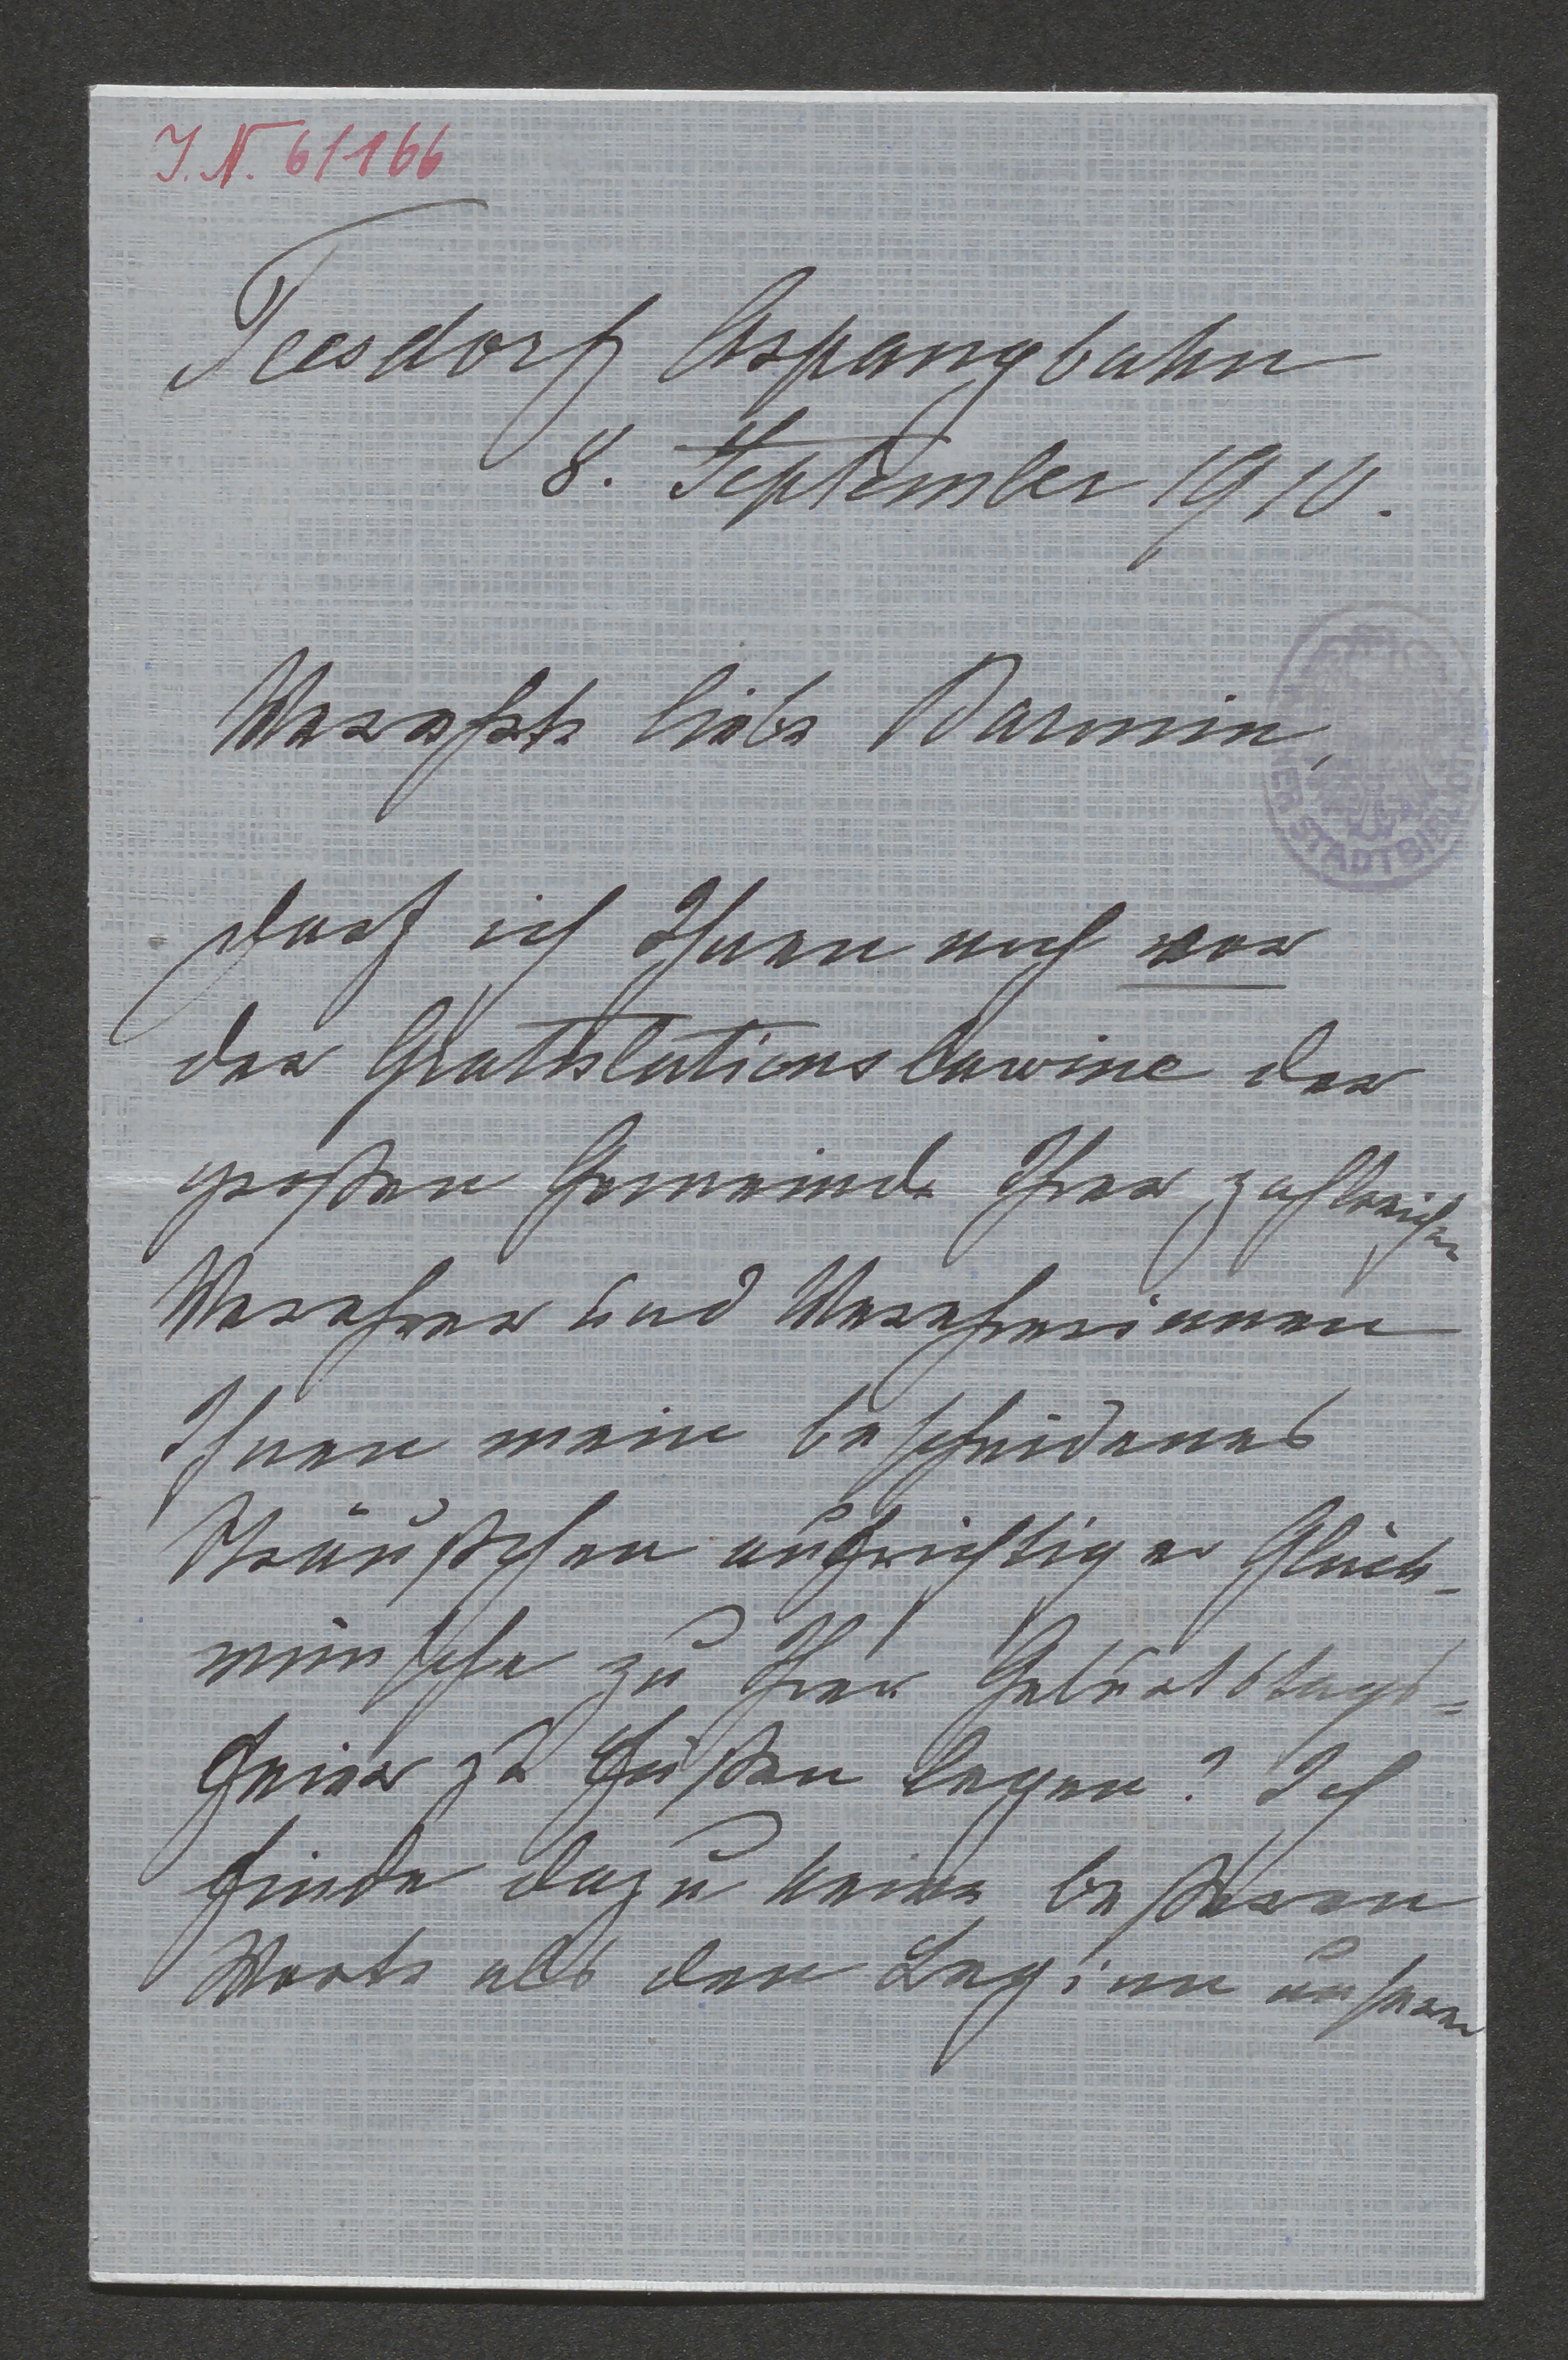 J. N. 61166
Teesdorf Aspangbahn
8. September 1910.
Verehrte liebe Baronin,
WIENER STADTBIBLIOTHEK
darf ich Ihnen noch vor
der Gratulationslawine der
großen Gemeinde Ihrer zahlreichen
Verehrer und Verehrerinnen
Ihnen mein bescheidenes
Sträußchen aufrichtiger Glück-
wünsche zu Ihrer Geburtstags-
feier zu Füßen legen? Ich
finde dazu keine besseren
Worte als den Beginn unserer